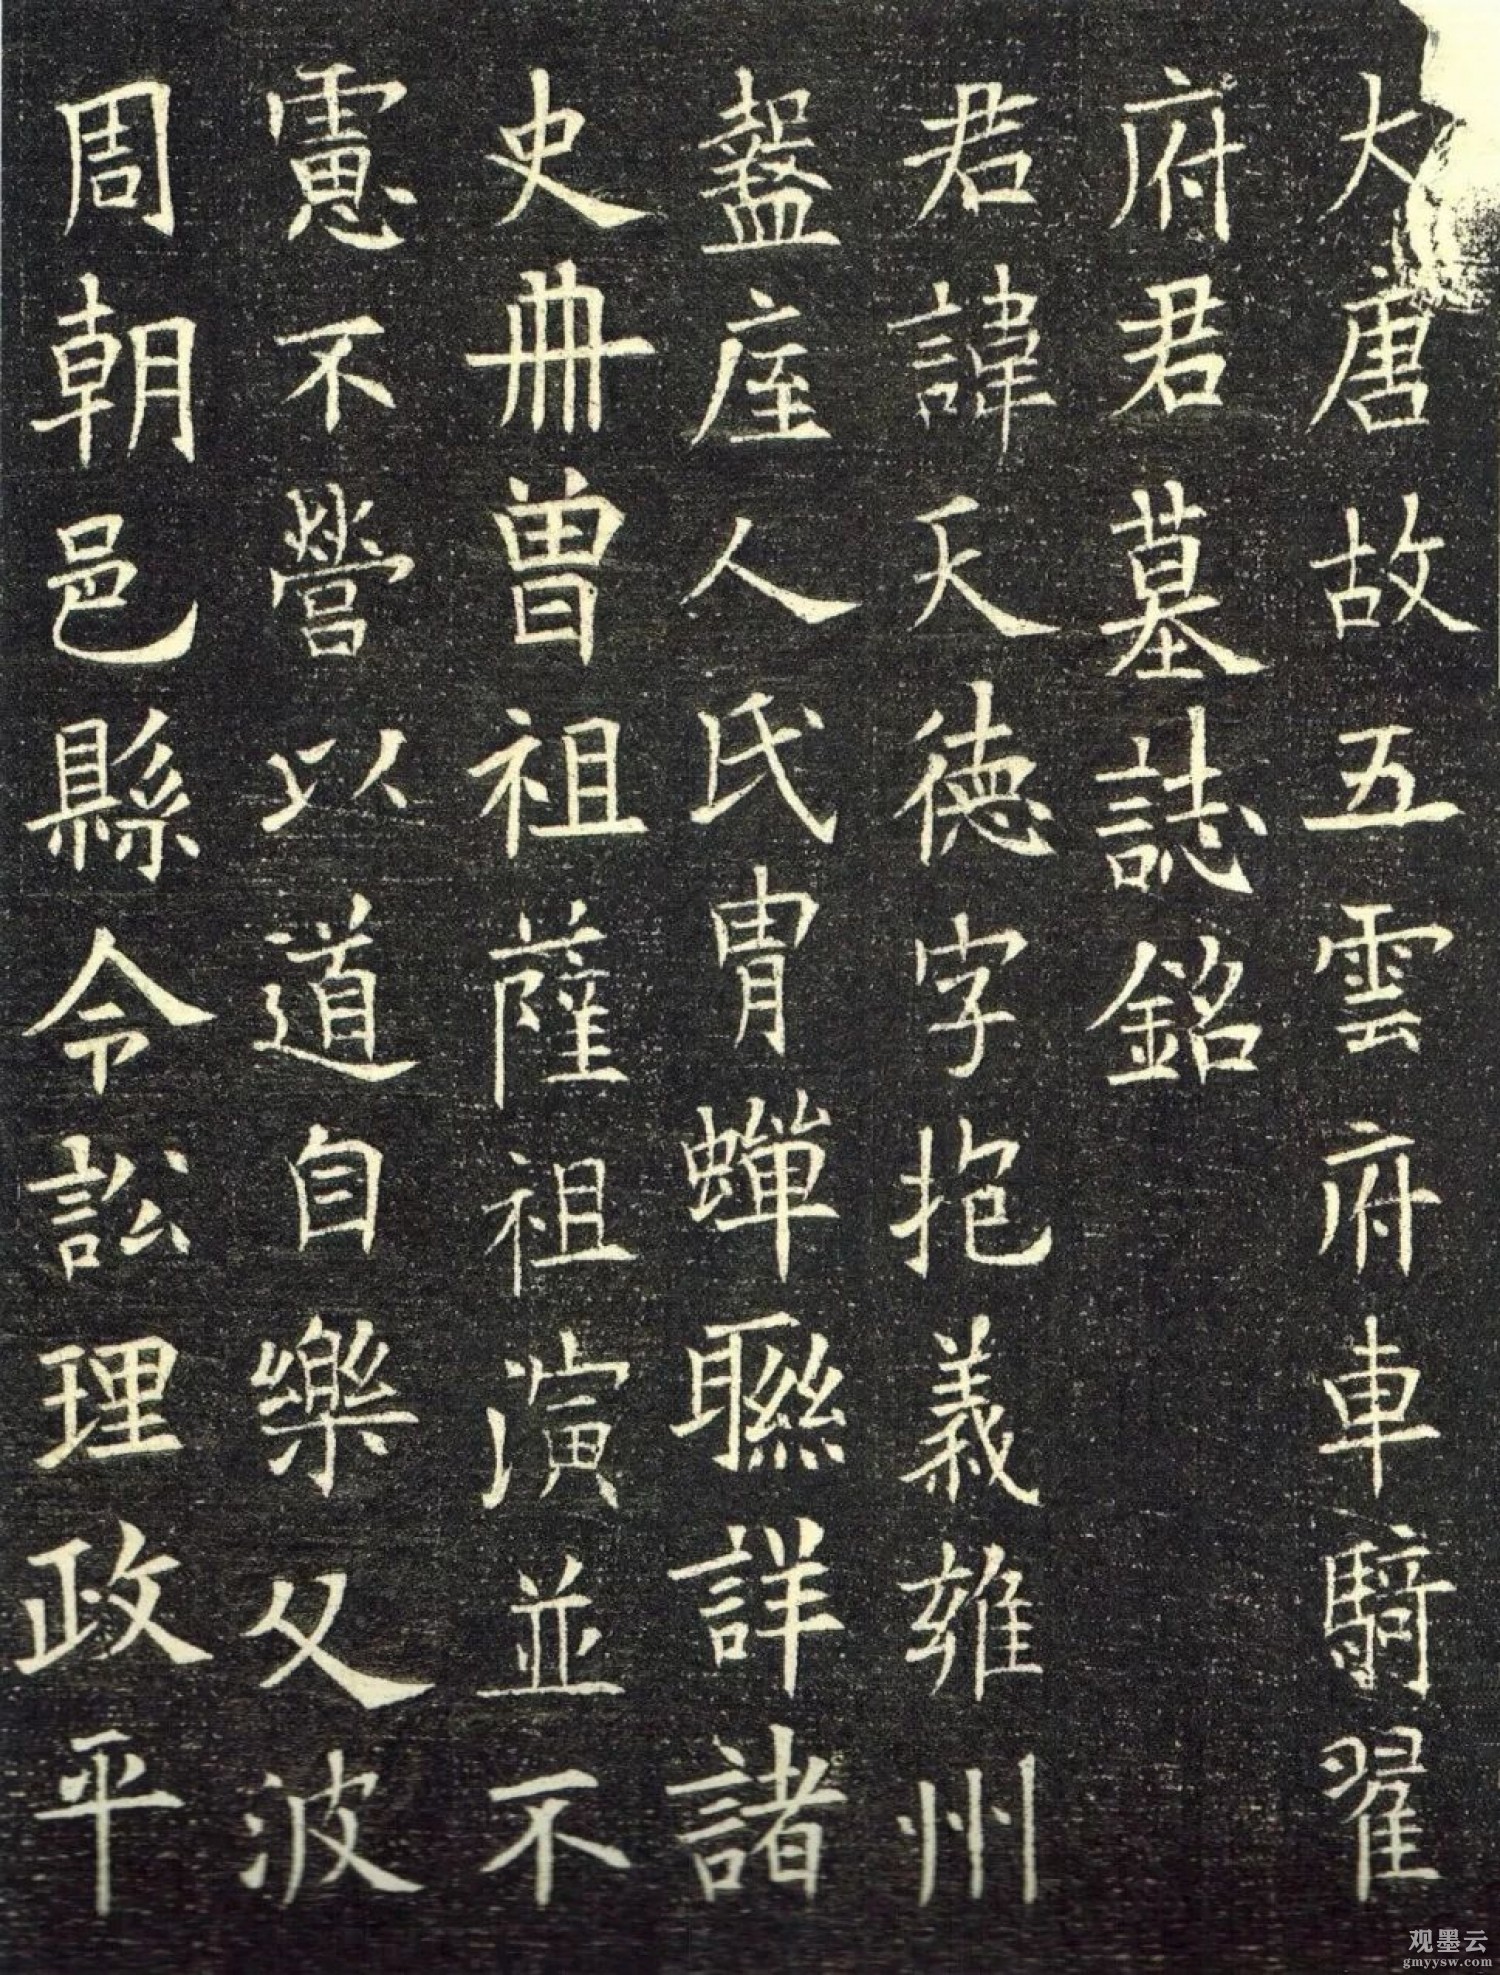 大唐故五雲府車騎翟
府君墓誌銘
君諱天德字抱義雍州
盩庢人氏冑蟬聯詳諸
史冊曾祖薩祖演並不
慮不營以道自樂父波
周朝邑縣令訟理政平
观墨云
gmyysw.com